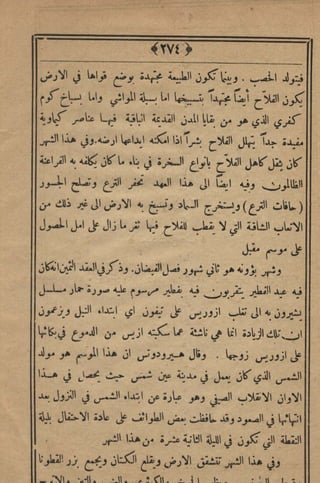 ﴿ ٢٧٤ ﴾
فيتولد الخصب . وبينما تكون الطبيعة مجتهدة بوضع قواها في الارض
يكون الفلاّح أيضاً مجتهداً بتسبيخها اما بسبلة المواشي واما بسباخ كوم
كفري الذي هو من بقايا المدن القديمة الباقية فيها عناصر كيماوية
مفيدة جداً يتهلل الفلاح بشراً اذا امكنه ايداعها ارضه. وفي هذا الشهر
كان يثقل كاهل الفلاّح بانواع السخرة في بناء ما كان يكلفه به الفراعنة
الظالمون وفيه ايضاً الى هذا العهد تحفر الترع وتصلح الجسور
(حافات الترع) ويستخرج السماد وتسبيخ به الارض الى غير ذلك من
الاتعاب الشاقة التي لا يقطب للفلاح فيها ثغر ما زال على امل الحصول
على موسم مقبل
وشهر بؤونه هو ثاني شهور فصل الفيضان. وذكر في العقد الثمين انه كان
فيه عيد الفطير يتقربون فيه بفطير مرسوم عليه صورة حمار مسلسل
يشيرون به الى تغلب ازوريس على تيفون اي ابتداء النيل ويزعمون
ان تلك الزيادة انما هي ناشئة عما سكبته ازيس من الدموع في بكائها
على ازوريس زوجها . وقال هيرودوتس ان هذا الموسم هو مولد
الشمس الذي كان يعمل في مدينة عين شمس حيث يحصل في هذا
الاوان الانقلاب الصيفي وهو عبارة عن ابتداء الشمس في النزول بعد
انتهائها في الصعود وقد حافظت بعض الطوائف على عادة الاحتفال بليلة
النقطة التي تكون في الليلة الثانية عشرة من هذا الشهر
وفي هذا الشهر تتشقق الارض ويقلع الكتان ويجمع بزر القطونا